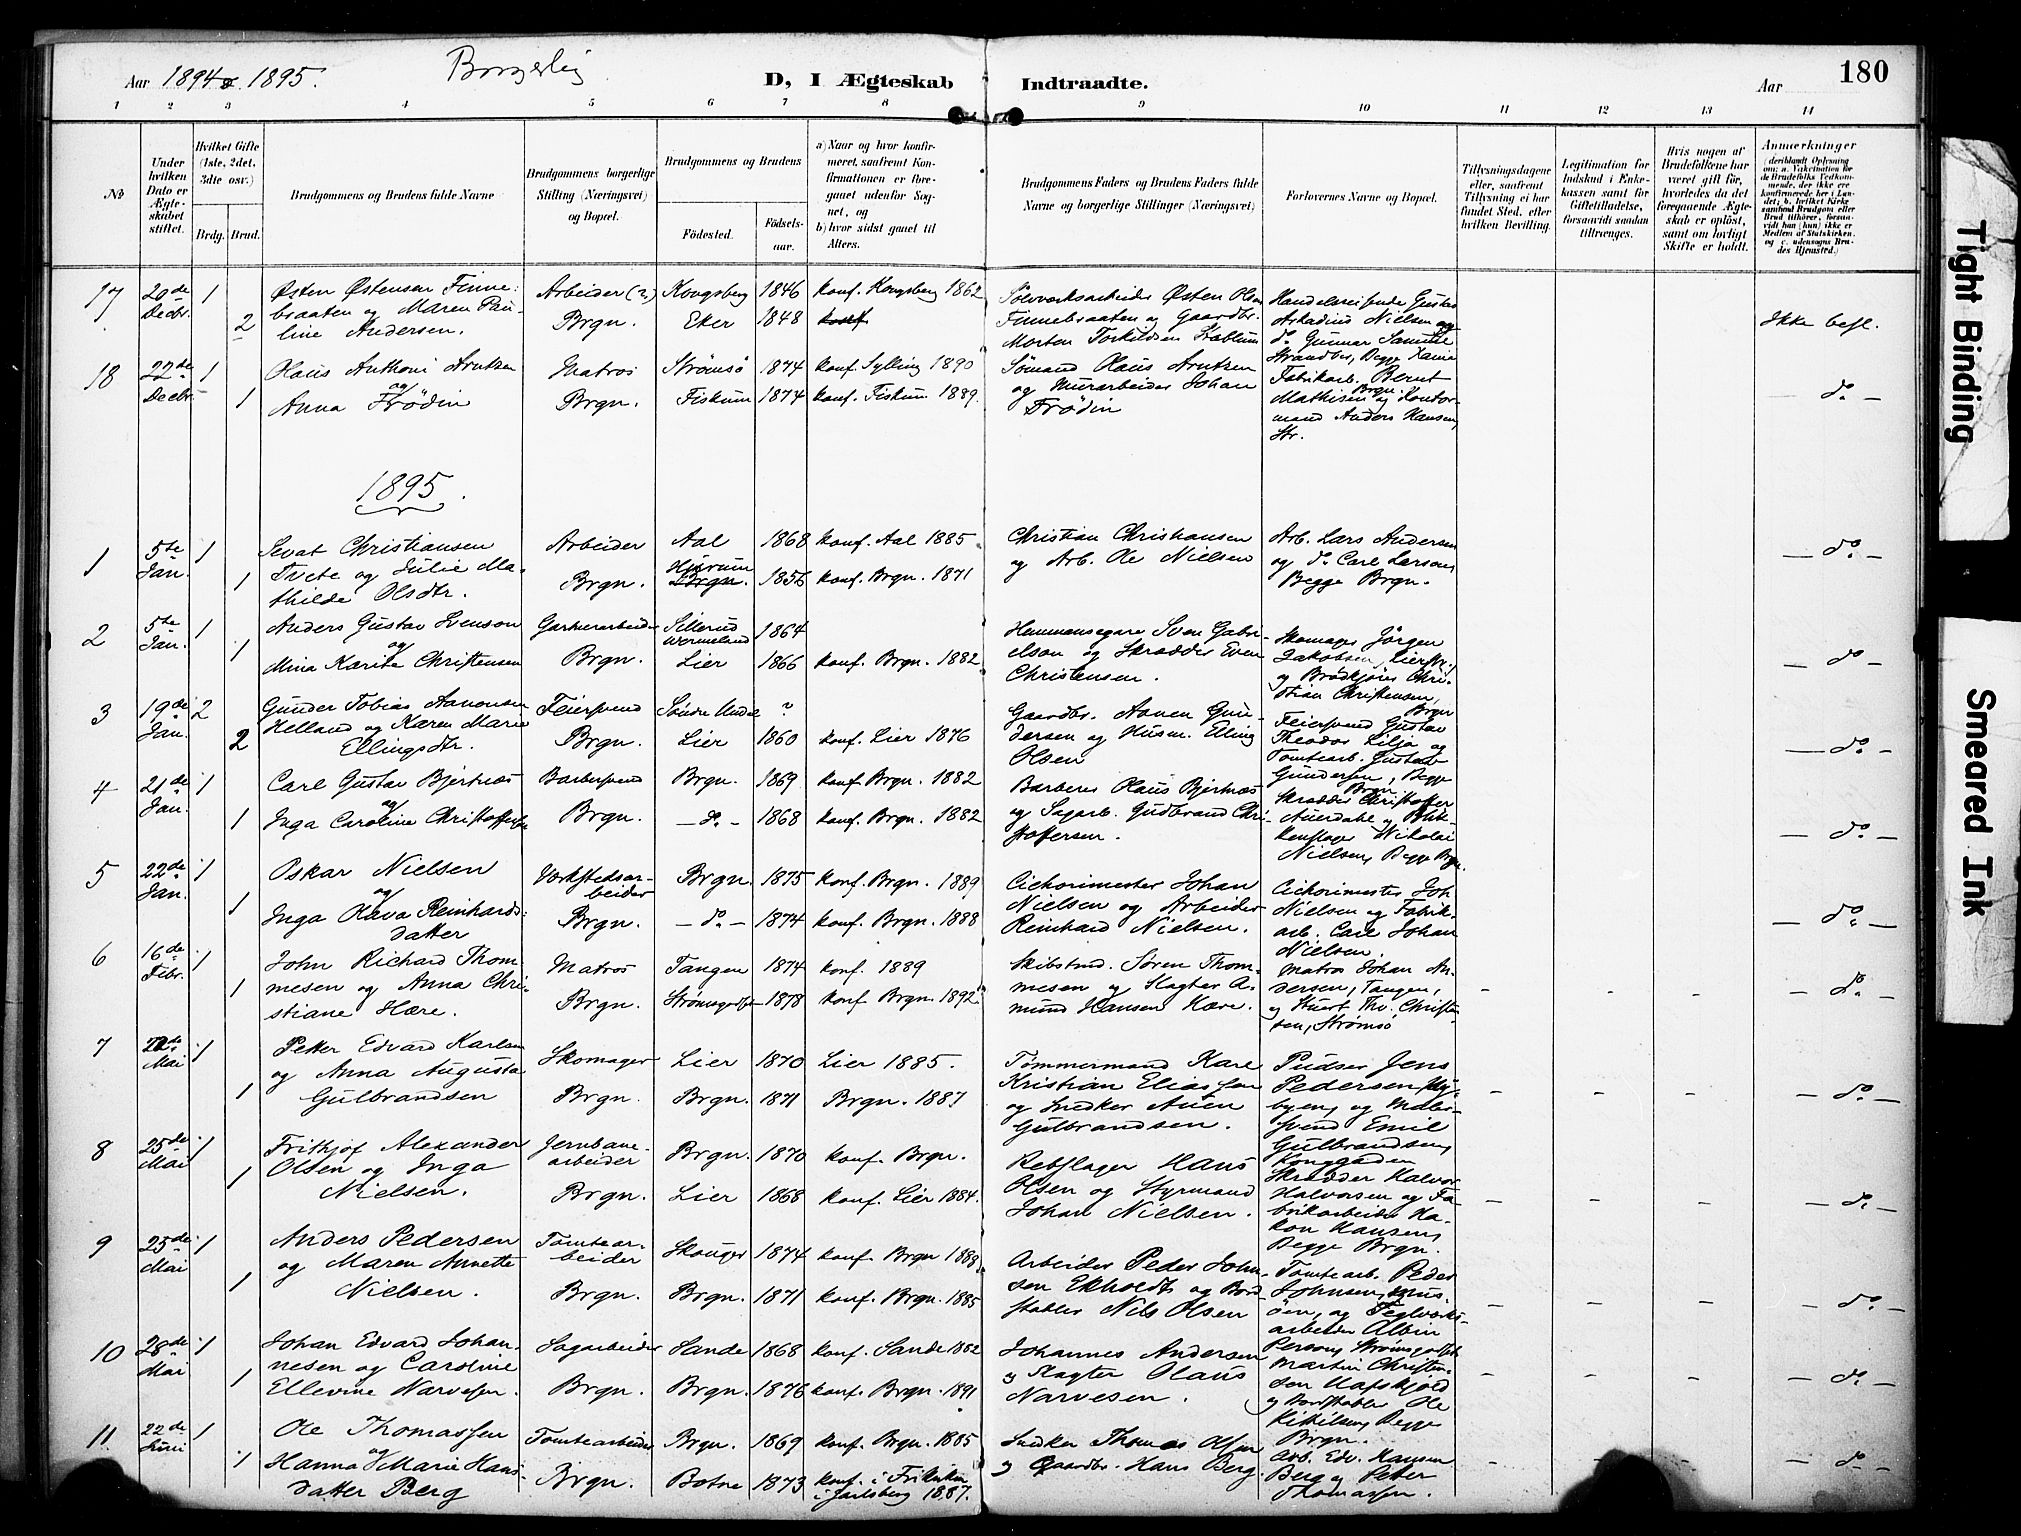 Aar 1894 & 1895.
Borgerlig
D, I Ægteskab Indtraadte.
Aar
180
1 2 3 4 5 6 7 8 9 10 11 12 13 14
No
Under hvilken Dato er Ægteskabet stiftet.
Hvilket Gifte (1ste, 2det, 3die osv.)
Brdg. Brud.
Brudgommens og Brudens fulde Navne
Brudgommens borgerlige Stilling (Næringsvei) og Bopæl.
Brudgommens og Brudens
Fødested.
Fødselsaar.
a) Naar og hvor konfirmeret, saafremt Konfirmationen er foregaaet udenfor Sognet, og
b) hvor sidst gaaet til Alters.
Brudgommens Faders og Brudens Faders fulde Navne og borgerlige Stillinger (Næringsvei)
Forlovernes Navne og Bopæl.
Tillysningsdagene eller, saafremt Tillysning ei har fundet Sted, efter hvilken Bevilling.
Legitimation for Indskud i Enkekassen samt for Giftetilladelse, forsaavidt saadan tiltrænges.
Hvis nogen af Brudefolkene har været gift før, hvorledes da det foregaaende Ægteskab er opløst, samt om lovligt Skifte er holdt.
Anmærkninger
(deriblandt Oplysning om: a. Vakcination for de Brudefolks Vedkommende, der ikke ere konfirmerede her i Landet; b. hvilket Kirkesamfund Brudgom eller Brud tilhører, forsaavidt han (hun) ikke er Medlem af Statskirken, og c. udensogns Brudes Hjemsted.)
17 20de Decbr. 1 2
Østen Østensen Finnebraaten og Maren Pauline Andersen.
Arbeider (?) Brgn.
Kongsberg 1846 konf. Kongsberg 1862
Eker 1848
Sølvverksarbeider Østen Olsen Finnebraaten og Gaardbr. Morten Torkildsen Stablum
Handelsreisende Gustav Arkadius Nielsen og do Gunnar Samuel Strandbr, Begge Xania
Ikke befl.
18 22de Decbr. 1 1
Olaus Anthoni Arntzen og Anna Frödin
Matros Brgn.
Strømsø 1874 konf. Sylling 1890
Fiskum 1874 konf. Fiskum 1889.
Sømand Olaus Arntzen og Murarbeider Johan Frödin
Fabrikarb. Bernt Mathisen Brgn. og Kontormand Anders Hansen, Str.
— do —
1895.
1 5te Jan. 1 1
Sevat Christiansen Tvete og Julie Mathilde Olsdtr.
Arbeider Brgn.
Aal 1868 konf. Aal 1885
Hjurum Brgn. 1856 konf. Brgn. 1871
Christian Christiansen og Arb. Ole Nielsen
Arb. Lars Andersen og do Carl Larsen, Begge Brgn.
— do. —
2 5te Jan. 1 1
Anders Gustav Svenson og Mina Karita Christensen
Garverarbeider Brgn.
Sillerud Wermeland 1864
Lier 1866 konf. Brgn. 1882
Hemmansegare Sven Gabrielson og Skrædder Even Christensen.
Skomager Jörgen Jakobsen, Lierstr. og Brødkjører Christian Christensen, Brgn
— do —
3 19de Jan. 2 2
Gunder Tobias Aanensen Helland og Karen Marie Ellingsdtr.
Feiersvend Brgn.
Søndre Undal ?
Lier 1860 konf. Lier 1876
Gaardbr. Aanen Gundersen og Husm. Elling Olsen
Feiersvend Gustav Theodor Lilja og Tomtearb. Gustav Gundersen, Begge Brgn
— do —
4 21de Jan. 1 1
Carl Gustav Bjertnæs og Inga Caroline Christoffersen
Barbersvend Brgn.
Brgn. 1869 konf. Brgn. 1882
— do — 1868 konf. Brgn. 1882
Barberer Olaus Bjertnæs og Sagarb. Gudbrand Christoffersen.
Skrædder Christoffer Auerdahl og Blikkenslager Nikolai Nielsen, Begge Brgn.
— do —
5 22de Jan. 1 1
Oskar Nielsen og Inga Olava Reinhardsdatter
Værkstedsarbeider Brgn.
Brgn. 1875 konf. Brgn. 1889
— do — 1874 konf. Brgn. 1888
Cichorimester Johan Nielsen og Arbeider Reinhard Nielsen.
Cichorimester Joh Nielsen og Fabrikarb. Carl Johan Nielsen.
— do —
6 16de Febr. 1 1
John Richard Thommesen og Anna Christiane Hære.
Matros Brgn.
Tangen 1874 konf. 1889
Strømsgodset 1878 konf. Brgn. 1892
Skibstmd. Søren Thommesen og Slagter Amund Hansen Hære.
Matros Johan Andersen, Tangen, og Stuert Thv. Christensen, Strømsø
— do —
7 Mai 1 1
Petter Edvard Karlsen og Anna Augusta Gulbrandsen
Skomager Brgn.
Lier 1870 Lier 1885.
Brgn. 1871 Brgn. 1887
Tømmermand Karl Kristian Eliassen og Snedker Auen Gulbrandsen.
Pudser Jens Pedersen, Nybyen, og Malersvend Emil Gulbrandsen, Konggaden
— do —
8 25de Mai 1 1
Frithjof Alexander Olsen og Inga Nielsen.
Jernbanearbeider Brgn.
Brgn. 1870 konf. Brgn.
Lier 1868 konf. Lier 1884.
Rebslager Hans Olsen og Styrmand Johan Nielsen.
Skrædder Halvor Halvorsen og Fabrikarbeider Hakon Hansen, Begge Brgn.
— do —
9 25de Mai 1 1
Anders Pedersen og Maren Annette Nielsen.
Tomtearbeider Brgn.
Skouger 1874 konf. Brgn 1888
Brgn. 1871 konf. Brgn. 1885
Arbeider Peder Johnsen Ekholdt og Bordstabler Nils Olsen
Tomtearb. Peder Johnsen, Musöen, og Teglværksarbeider Albin Person, Strømsgodset
— do —
10 28de Mai 1 1
Johan Edvard Johannesen og Caroline Ellevine Narvesen.
Sagarbeider Brgn.
Sande 1868 konf. Sande 1882
Brgn. 1876 konf. Brgn. 1891
Johannes Andersen og Slagter Olaus Narvesen.
Martin Christensen Hafskjold og Bordstabler Ole Kittilsen, Begge Brgn.
— do —
11. 22de Juni 1 1
Ole Thomassen og Hanna Marie Hansdatter Berg
Tomtearbeider Brgn.
Brgn. 1869 konf. Brgn. 1885
Botne 1873 konf. i Frikirken i Jarlsberg 1887.
Snedker Thomas Olsen og Gaardbr. Hans Berg.
Arb. Edv. Hansen Berg og Peter Thomassen.
— do —
Tight Binding
Smeared Ink